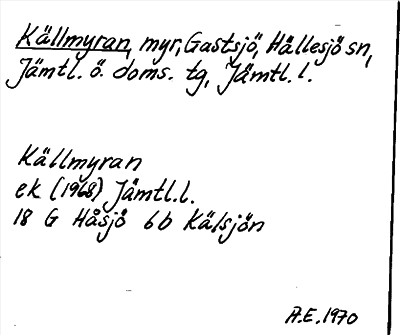 Källmyran, myr, Gastsjö, Hällesjö sn,
Jämtl. ö. doms. tg, Jämtl. l.
Källmyran
ek (1968) Jämtl.l.
18 G Håsjö 6b Kälsjön
A.E.1970